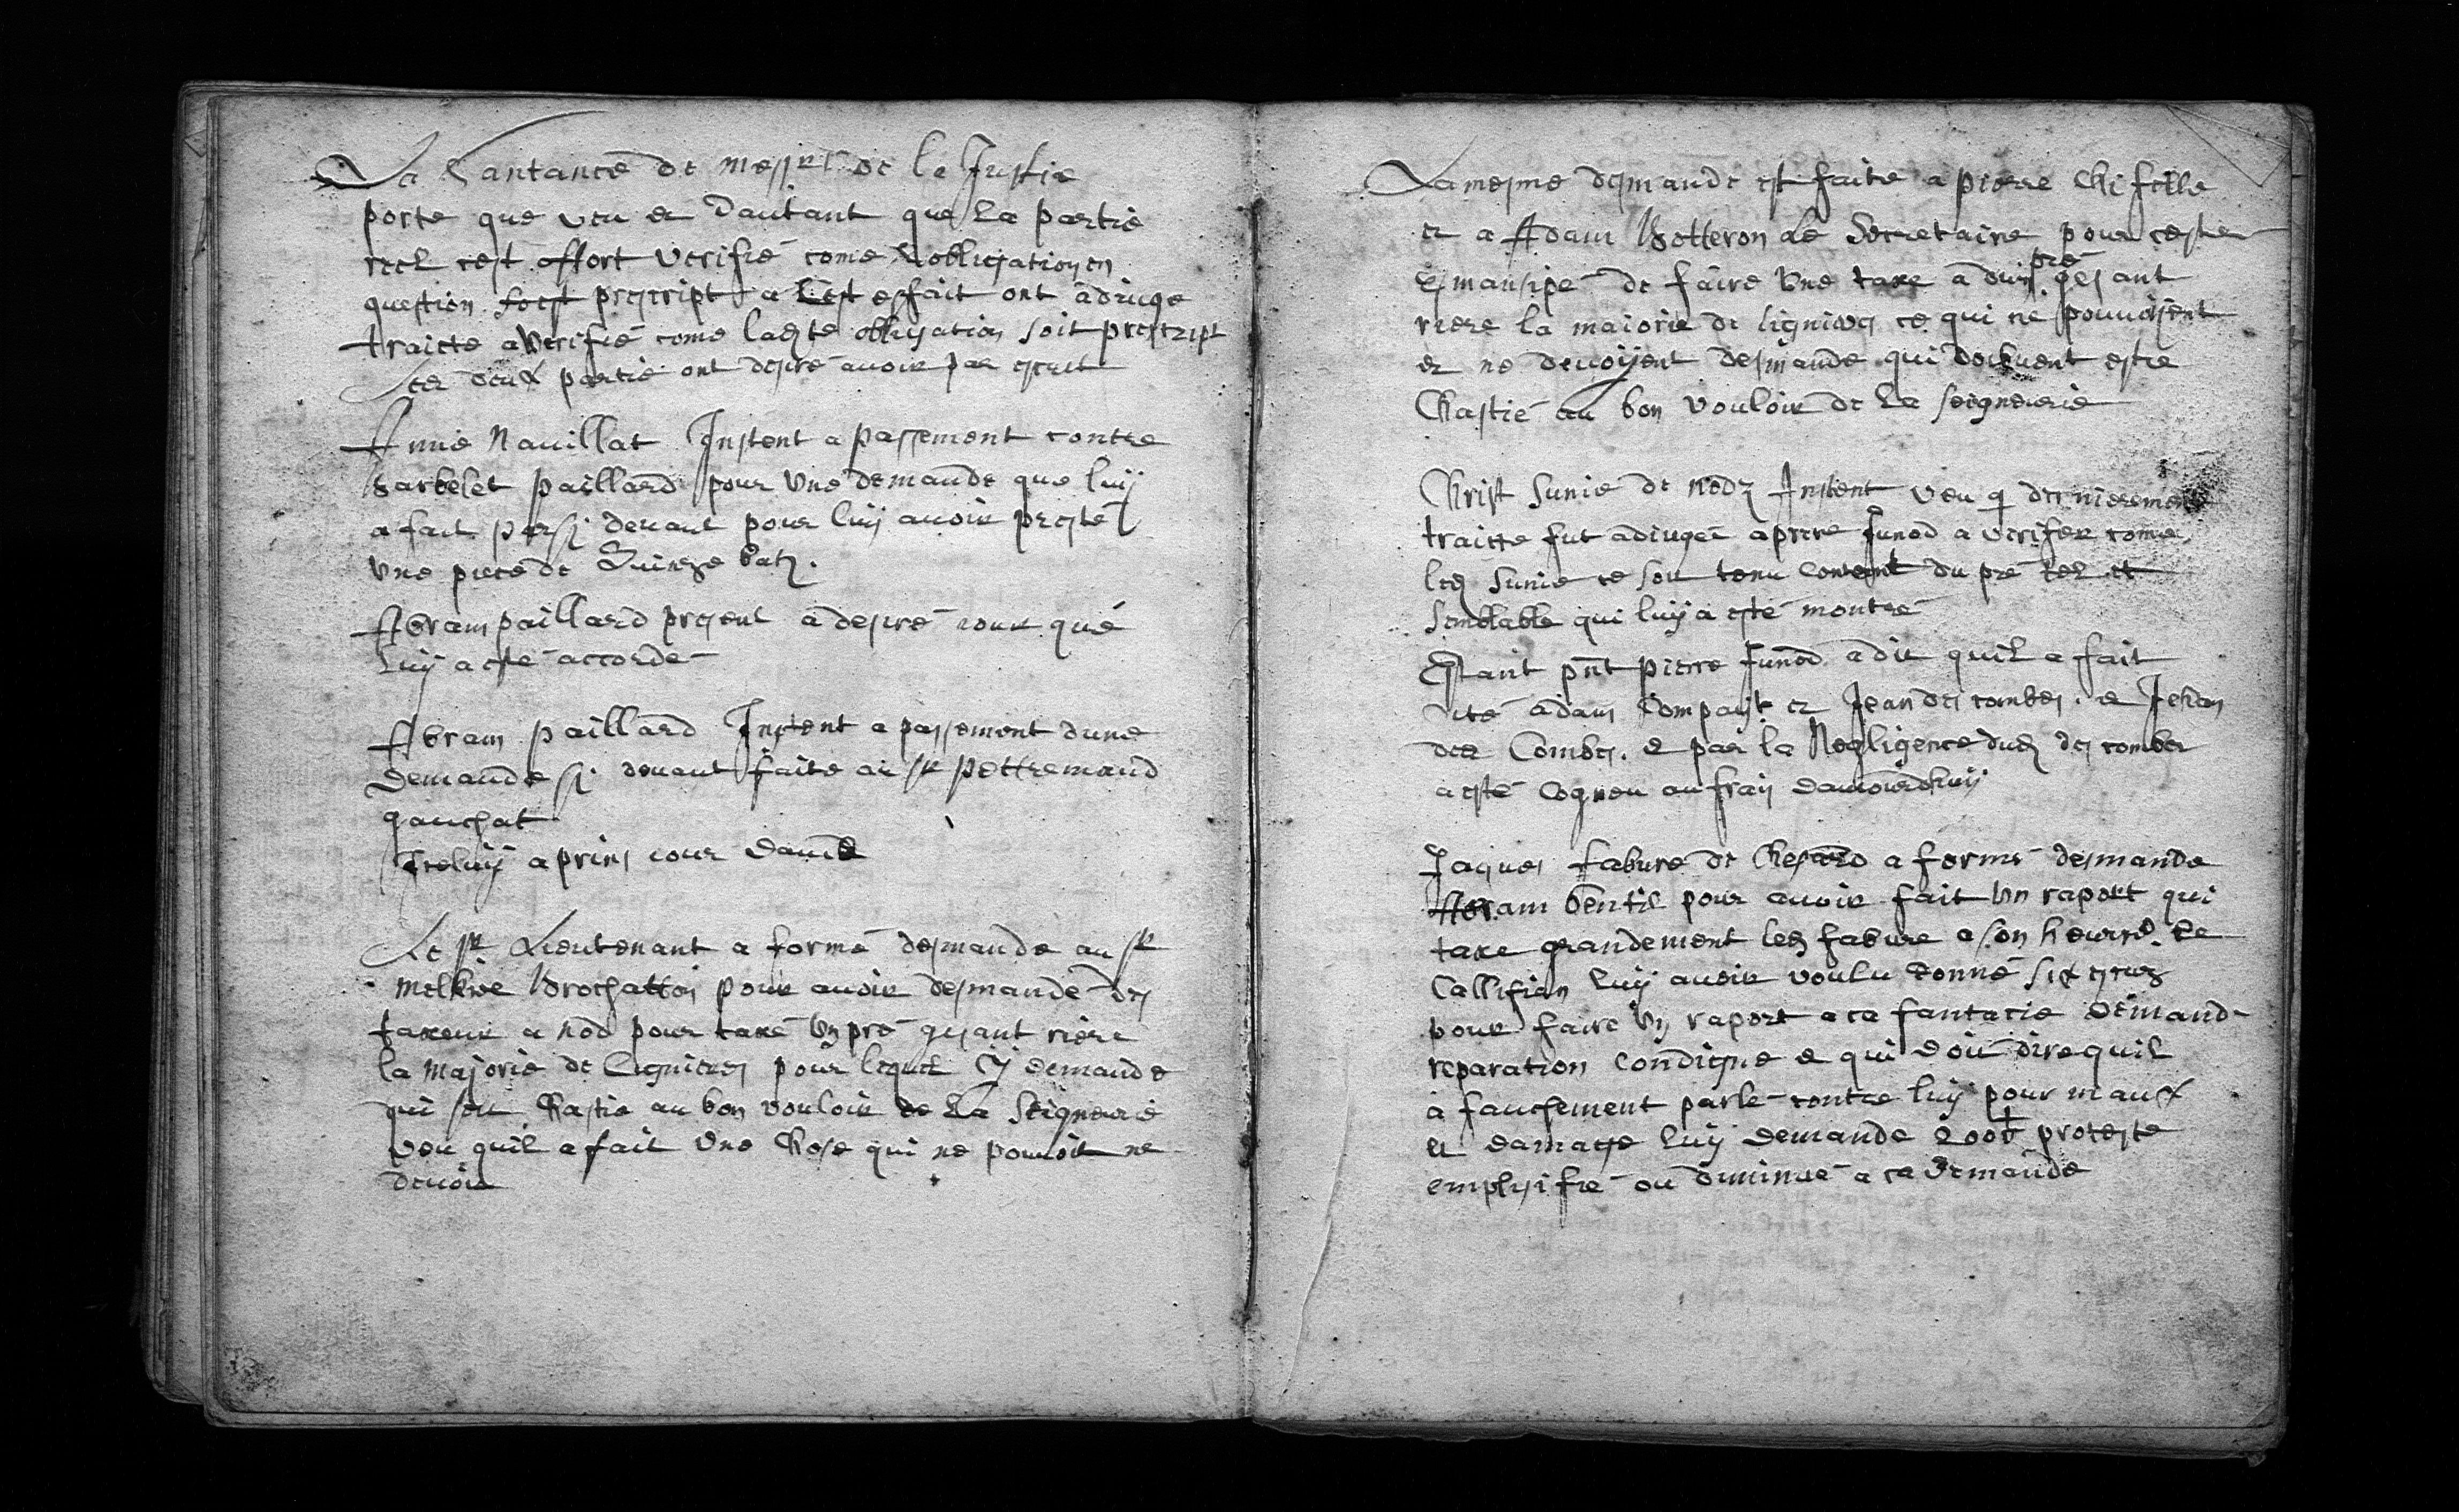 La Santance de messrs de la Justice
porte que veu et dautant que la partie
rect cest offort verifie come Lobligation en
question soest prescript a Cest esfait ont adiuge
traicte a verifie come ladite obligation soit prescript
Les deux partie ont desire avoir par escrit
Annie Navillat Instent a passement contre
barbelet paillard pour une demande que luy
a fait parsy devant pour luy avoir preste
une piece de Quinze batz.
Abram paillard present a desire jour que
luy a este accorde
Abram paillard Instent a passement dune
demande sy devant faite au sr pettremand
gauchat
Iceluy a prins jour davis
Le sr Lieutenant a forme desmande au sr
melkior Brochatton pour avoir desmande des
taxeur a nod pour taxe un pre gesant riere
la majorie de Lignieres pour lequel Il demande
qui soit Chastie au bon vouloir de La Seignourie
veu quil a fait une Chose qui ne pouvoit ne
devoir
La mesme desmande est faite a pierre Chifelle
et a Adam Botteron le Secretaire pour cestre
esmansipe de faire une taxe a dun pre gesant
riere la maiorie de lignieres ce qui ne pouvoyent
et ne devoyent desmande qui doibvent estre
Chastie au bon vouloir de La seigneurie
Christ Sunie de nodz Instent veu q dernierement
traitte fut adiugee a pierre Junod a verifier come
led Sunie ce soit tenu content du pre tel et
semblable qui luy a este montre
Estant pnt pierre Junod a dit quil a fait
cite adam Compayt et Jean des combes. et Jehan
des Combes. et par la Negligence dud des combes
a este Cognou au frais daujourdhuy
Jaques fabvre de Chesard a forme desmande
Abram Gentil pour avoir fait un raport qui
taxe grandement led fabvre a son honneur. de
Callifian luy avoir voulu donne six escus
pour faire un raport a ca fantacie demande
reparation condigne et qui doit dire quil
a faucement parle contre luy pour maux
et damage luy demande 200 ℔ proteste
emplifie ou diminue a ca demande